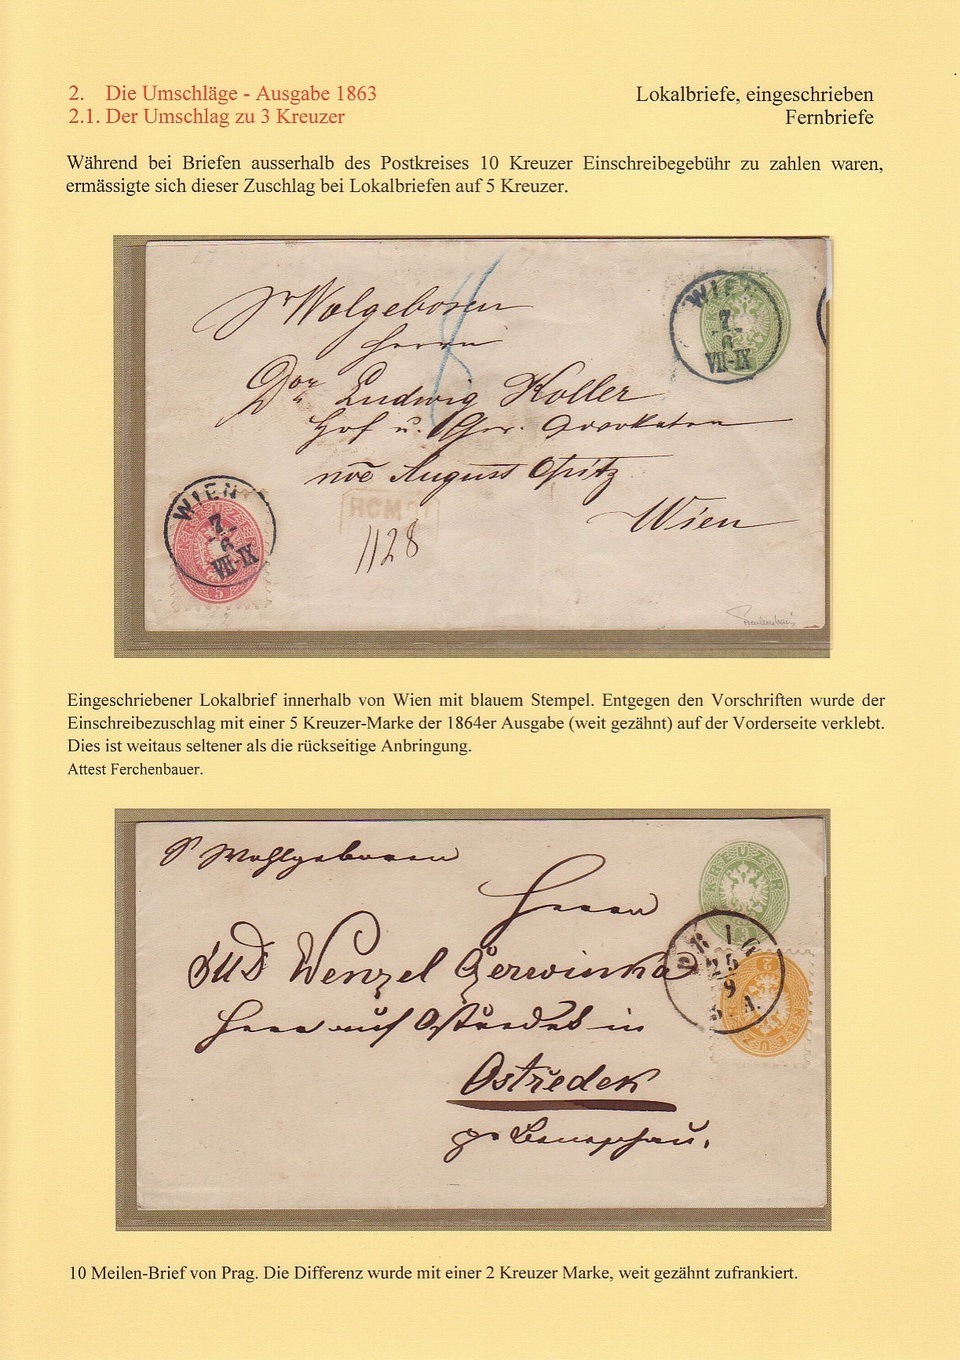 2. Die Umschläge - Ausgabe 1863
2.1. Der Umschlag zu 3 Kreuzer
Lokalbriefe, eingeschrieben
Fernbriefe
Während bei Briefen ausserhalb des Postkreises 10 Kreuzer Einschreibegebühr zu zahlen waren,
ermässigte sich dieser Zuschlag bei Lokalbriefen auf 5 Kreuzer.
Wolgeboren
Herrn
WIEN
7
6
VII-IX
Dor Ludwig Koller
Hof u. Ger. Advokaten
noe August Opitz
Wien
WIEN
7
6
VII-IX
5
1128
Eingeschriebener Lokalbrief innerhalb von Wien mit blauem Stempel. Entgegen den Vorschriften wurde der
Einschreibezuschlag mit einer 5 Kreuzer-Marke der 1864er Ausgabe (weit gezähnt) auf der Vorderseite verklebt.
Dies ist weitaus seltener als die rückseitige Anbringung.
Attest Ferchenbauer.
Wohlgeboren
Herrn
KREUZER
3
JUD Wenzel Čerwinka
PRAG
25
9
3 A.
2 KREUZER
Herr auf Ostredek in
Ostředek
pr Beneschau.
10 Meilen-Brief von Prag. Die Differenz wurde mit einer 2 Kreuzer Marke, weit gezähnt zufrankiert.